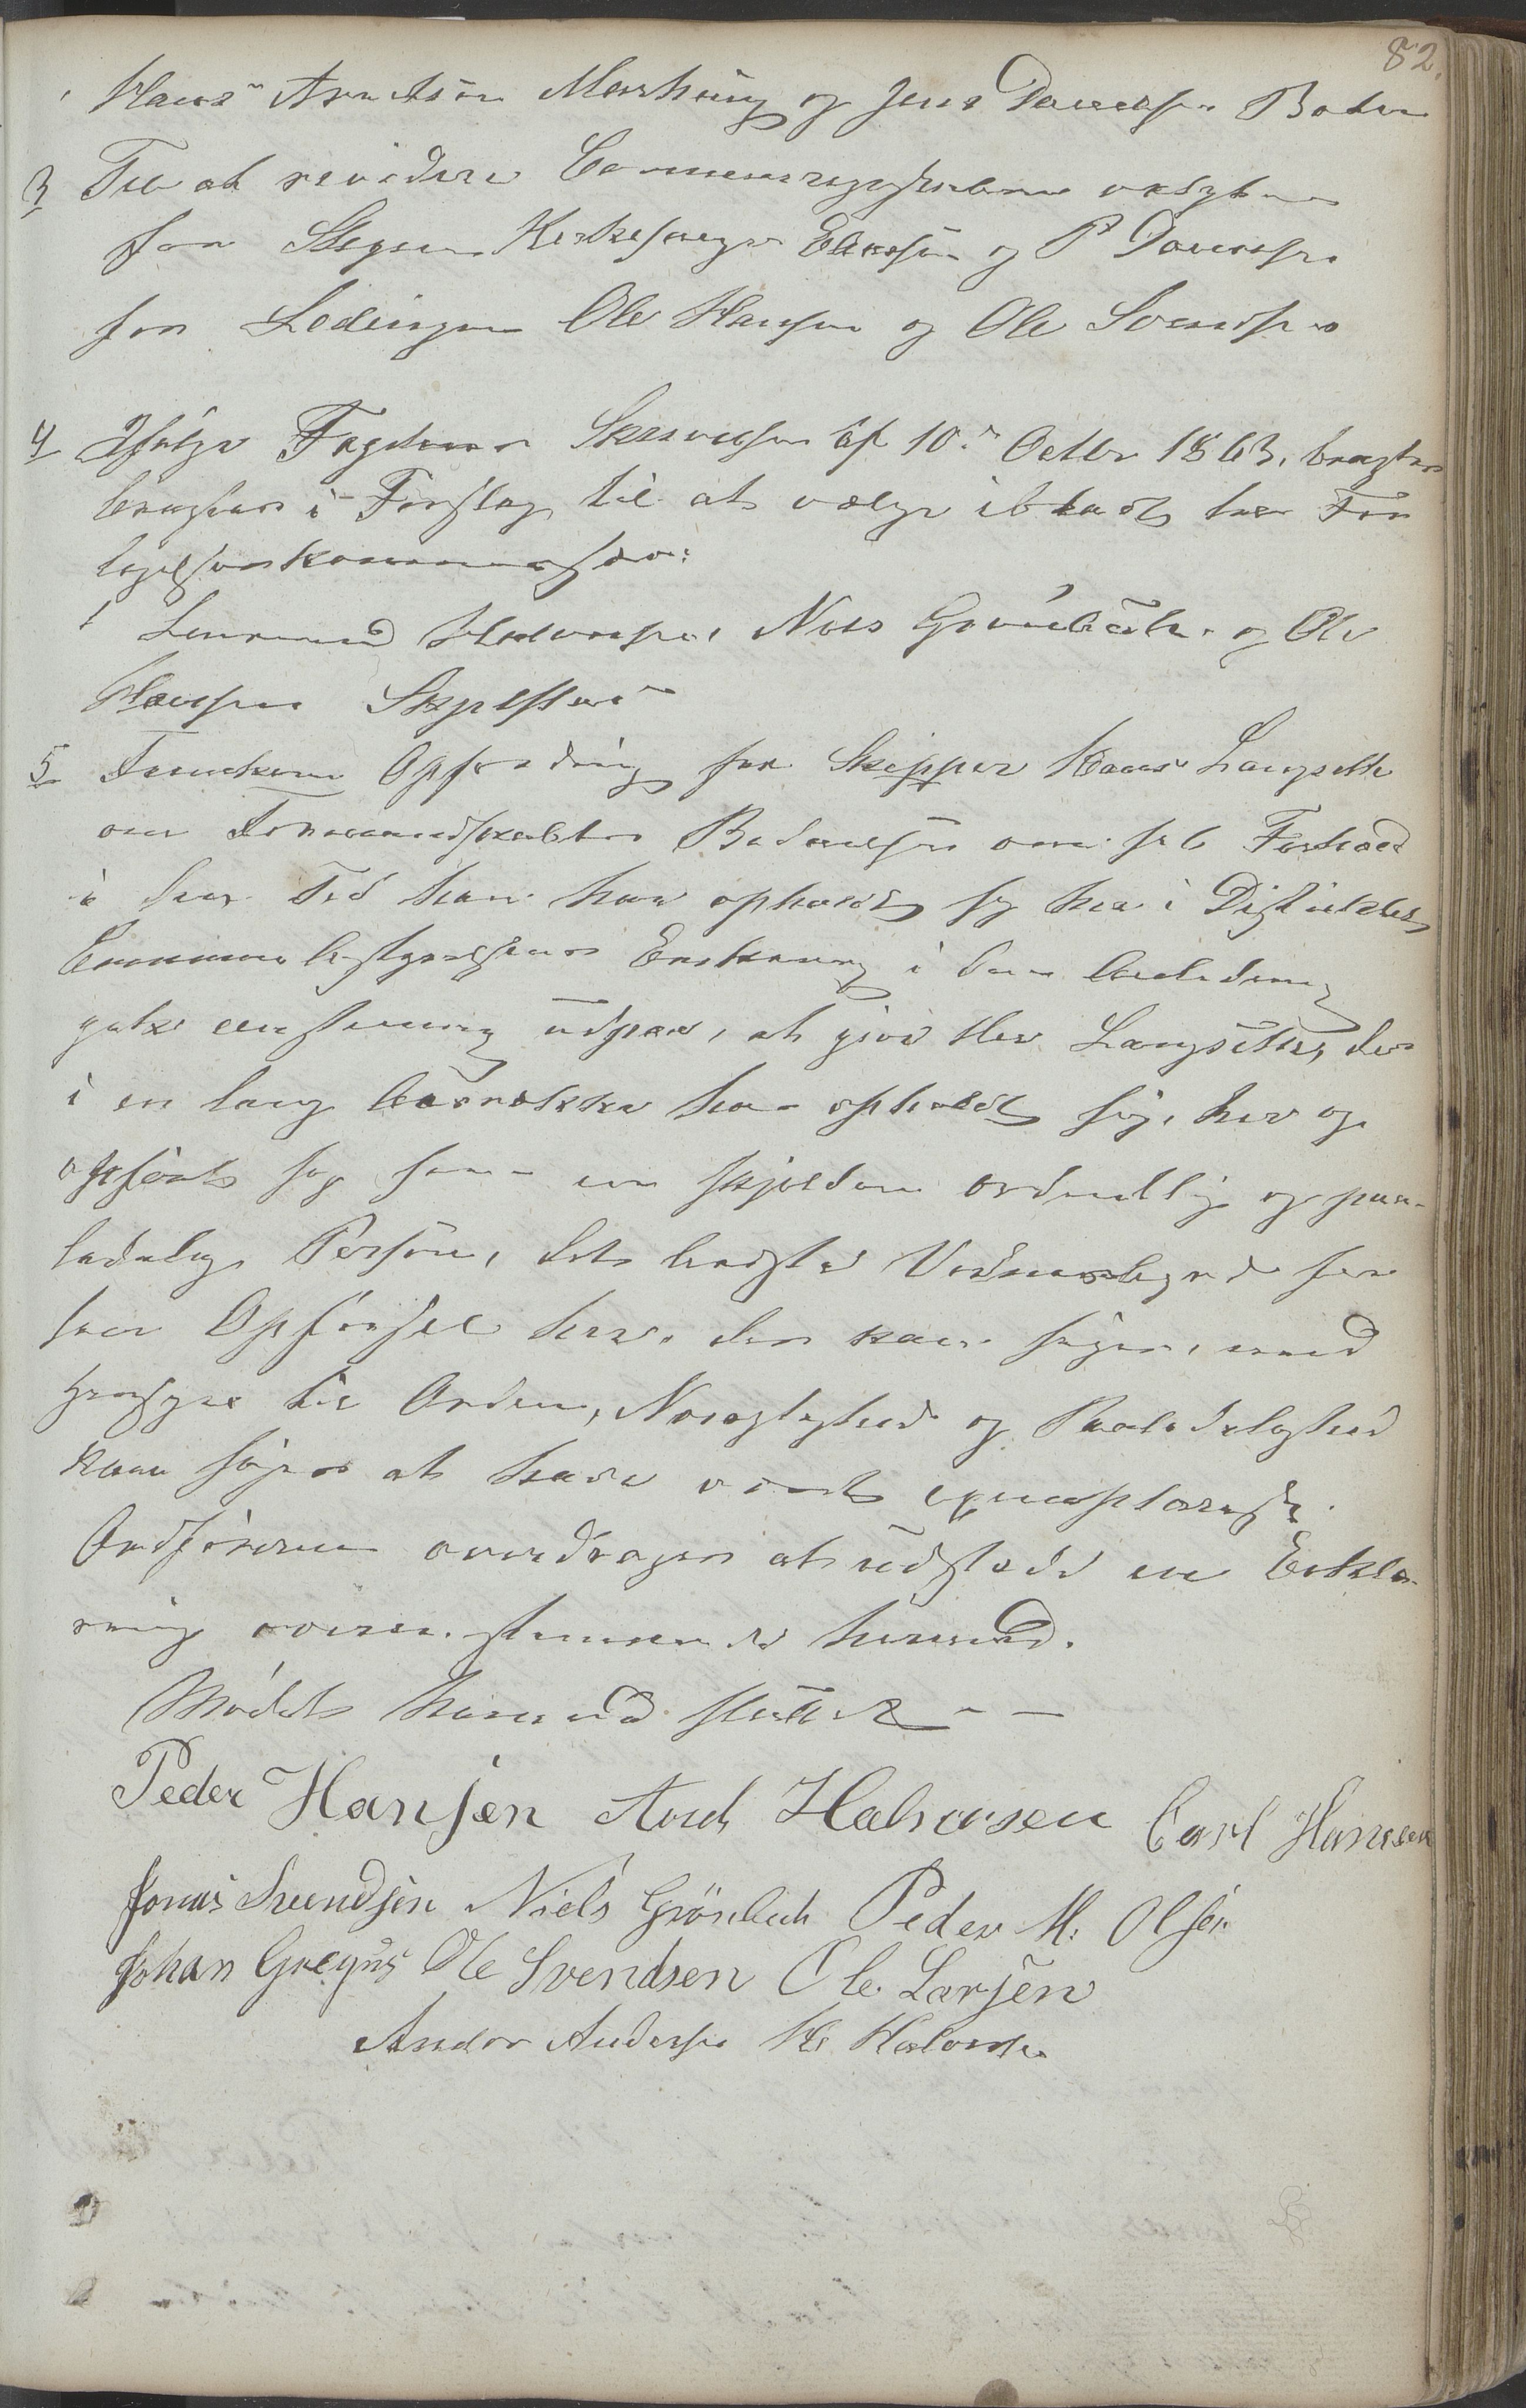 82.
Hans Arntsøn Mørkaing og Jens Davedsen Boten
3 Til at revidere Communeregnskaberne valgtes
for Stegen Kirkesanger Ellefsen og P Davedsen
for Ledingen Ole Hansen og Ole Svendsen
4 Ifølge Fogdens Skrivelse af 10de Octbr 1863, bragtes
bragtes i Forslag til at vælge iblandt til For
ligelseskommissær:
Lensmand Halvorsen, Niels Grønbech og Ole
Hansen
5 Fremkom Opfordring fra Skipper Hans Langseth
om Formandskabets Bedømmelse om sit Forhold
i den Tid han har opholdt sig her i Distriktet
Communebestyrelsens Erklæring i den Anledning
gikk eenstemmig ud paa, at give Hr. Langseth, der
i en lang Aarrække har opholdt sig her og
opført sig som en sjelden ordentlig og paa-
lidelig Person, det bedste Vidnesbyrd for
sin Opførsel her, der kan siges, med
Hensyn til Orden, Nøiagtighed og Paalidelighed
kan siges at have været exemplarisk.
Ordføreren overdroges at udstede en Erklæ-
ring overensstemmende hermed.
Mødet hermed sluttet
Peder Hansen Arnt Halvorsen Carl Hansen
Jonas Svendsen Niels Grönbech Peder M. Olsen
Johan Gregus Ole Svendsen Ole Larsen
Andor Andersen H. Halvorsen